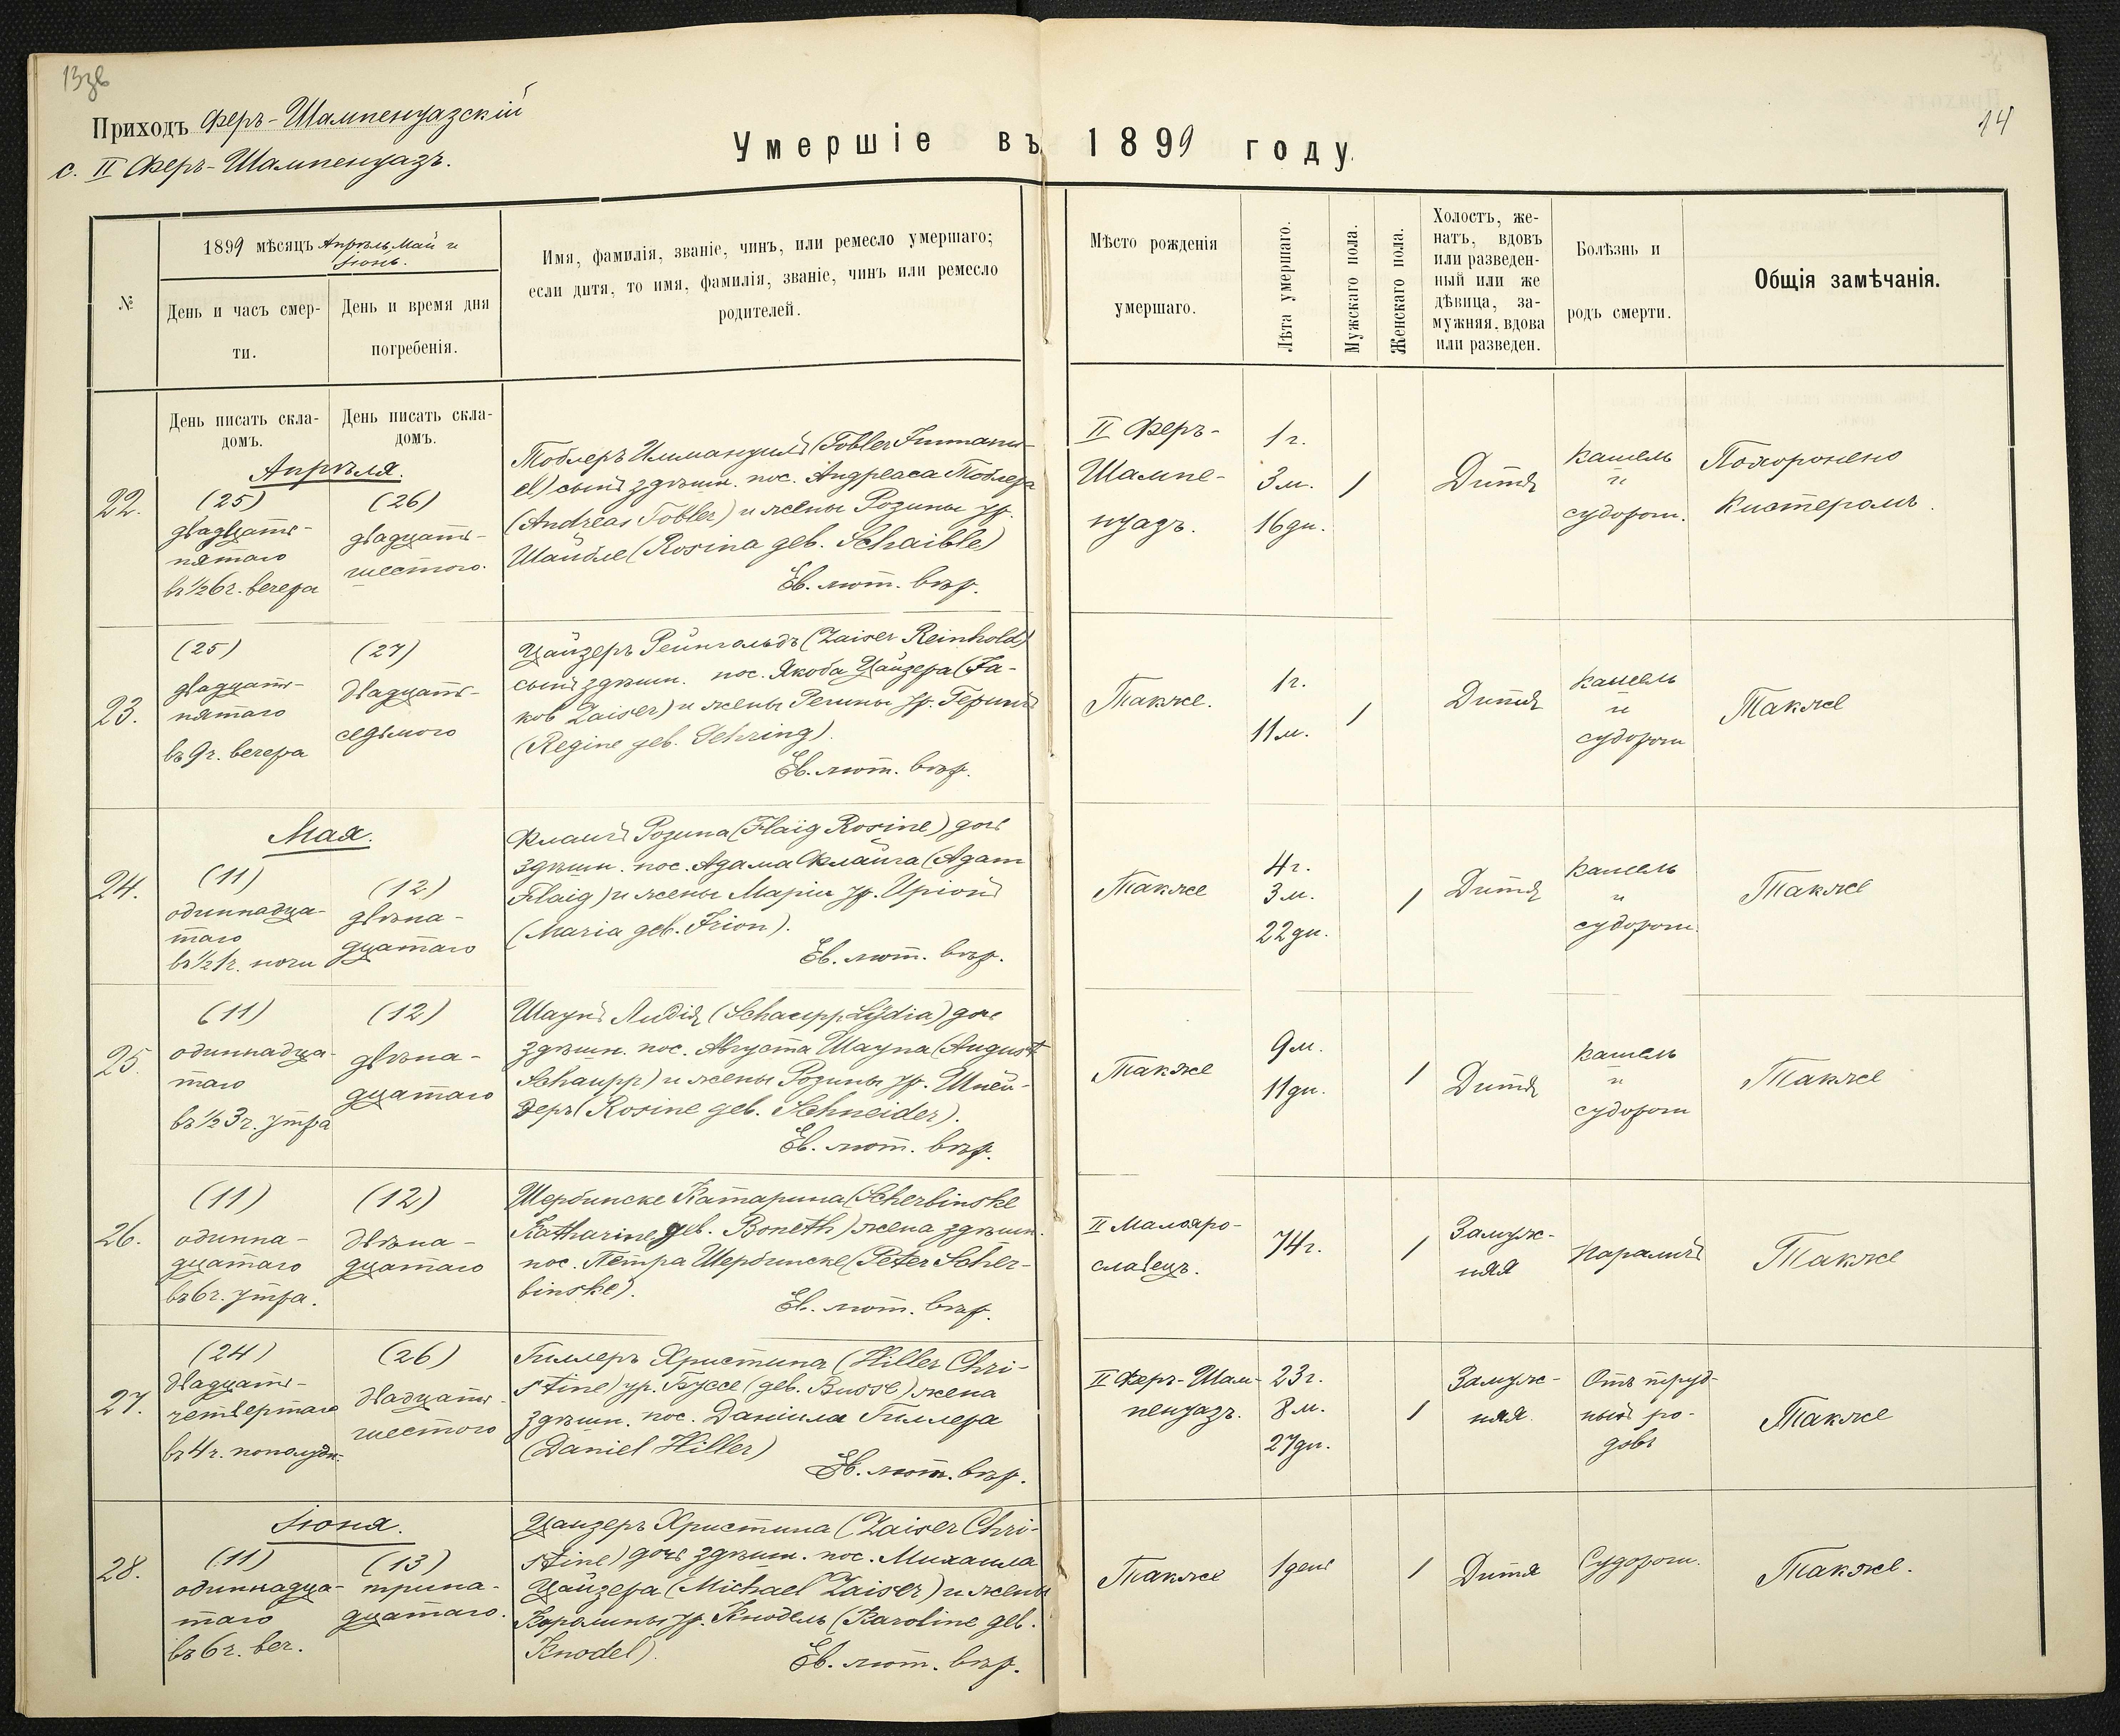 13зв
Приходъ Феръ-Шампенуазскій
с. II Феръ-Шампенуазъ.
Умершіе въ 1899 году.
14
№
1899 мѣсяцъ Апрѣль Май и
Іюнь.
День и часъ смер-
ти.
День и время дня
погребенія.
Имя, фамилія, званіе, чинъ, или ремесло умершаго;
если дитя, то имя, фамилія, званіе, чинъ или ремесло
родителей.
Мѣсто рожденія
умершаго.
Лѣта умершаго.
Мужскаго пола.
Женскаго пола.
Холостъ, же-
натъ, вдовъ
или разведен-
ный или же
дѣвица, за-
мужняя, вдова
или разведен.
Болѣзнь и
родъ смерти.
Общія замѣчанія.
День писать скла-
домъ.
День писать скла-
домъ.
Апрѣля.
22.
(25)
двадцать-
пятаго
въ ½6 ч. вечера
(26)
двадцать-
шестого.
Тоблеръ Иммануилъ (Tobler Immanu-
el) сынъ здѣшн. пос. Андреаса Тоблера
(Andreas Tobler) и жены Розины ур.
Шайбле (Rosina geb. Schaible)
Ев. лют. вѣр.
II Феръ-
Шампе-
нуазъ.
1 г.
3 м.
16 дн.
1
Дитя
кашель
и
судорог.
Похоронено
Кистеромъ.
23.
(25)
двадцать-
пятаго
въ 9 ч. вечера
(27)
двадцать-
седьмого
Цайзеръ Рейнгольдъ (Zaiser Reinhold)
сынъ здѣшн. пос. Якоба Цайзера (Ja-
kob Zaiser) и жены Регины ур. Герингъ
(Regine geb. Gehring).
Ев. лют. вѣр.
Также.
1 г.
11 м.
1
Дитя
кашель
и
судороги
Также
Мая.
24.
(11)
одиннадца-
таго
въ ½1 ч. ночи
(12)
двѣна-
дцатаго
Флаигъ Розина (Flaig Rosine) дочь
здѣшн. пос. Адама Флайга (Adam
Flaig) и жены Маріи ур. Иріонъ
(Maria geb. Irion).
Ев. лют. вѣр.
Также
4 г.
3 м.
22 дн.
1
Дитя
кашель
и
судороги.
Также
25.
(11)
одиннадца-
таго
въ ½3 ч. утра
(12)
двѣна-
дцатаго
Шаупъ Лидія (Schaupp Lydia) дочь
здѣшн. пос. Августа Шаупа (August
Schaupp) и жены Розины ур. Шней-
деръ (Rosine geb. Schneider).
Ев. лют. вѣр.
Также
9 м.
11 дн.
1
Дитя
кашель
и
судороги
Также
26.
(11)
одинна-
дцатаго
въ 6 ч. утра.
(12)
двѣна-
дцатаго
Шербинске Катарина (Scherbinske
Katharine geb. Boneth) жена здѣшн.
пос. Петра Шербинске (Peter Scher-
binske).
Ев. лют. вѣр.
II Малояро-
славецъ.
74 г.
1
Замуж-
няя
Параличъ
Также
27.
(24)
двадцать-
четвертаго
въ 4 ч. пополудн.
(26)
двадцать-
шестого
Гиллеръ Христина (Hiller Chri-
stine) ур. Буссе (geb. Busse) жена
здѣшн. пос. Даніила Гиллера
(Daniel Hiller)
Ев. лют. вѣр.
II Феръ-Шам-
пенуазъ.
23 г.
8 м.
27 дн.
1
Замуж-
няя.
Отъ труд-
ныхъ ро-
довъ
Также
Іюня.
28.
(11)
одиннадца-
таго
въ 6 ч. веч.
(13)
трина-
дцатаго.
Цаизеръ Христина (Zaiser Chri-
stine) дочь здѣшн. пос. Михаила
Цайзера (Michael Zaiser) и жены
Каролины ур. Кнодель (Karoline geb.
Knodel).
Ев. лют. вѣр.
Также
1 день
1
Дитя
Судороги.
Также.